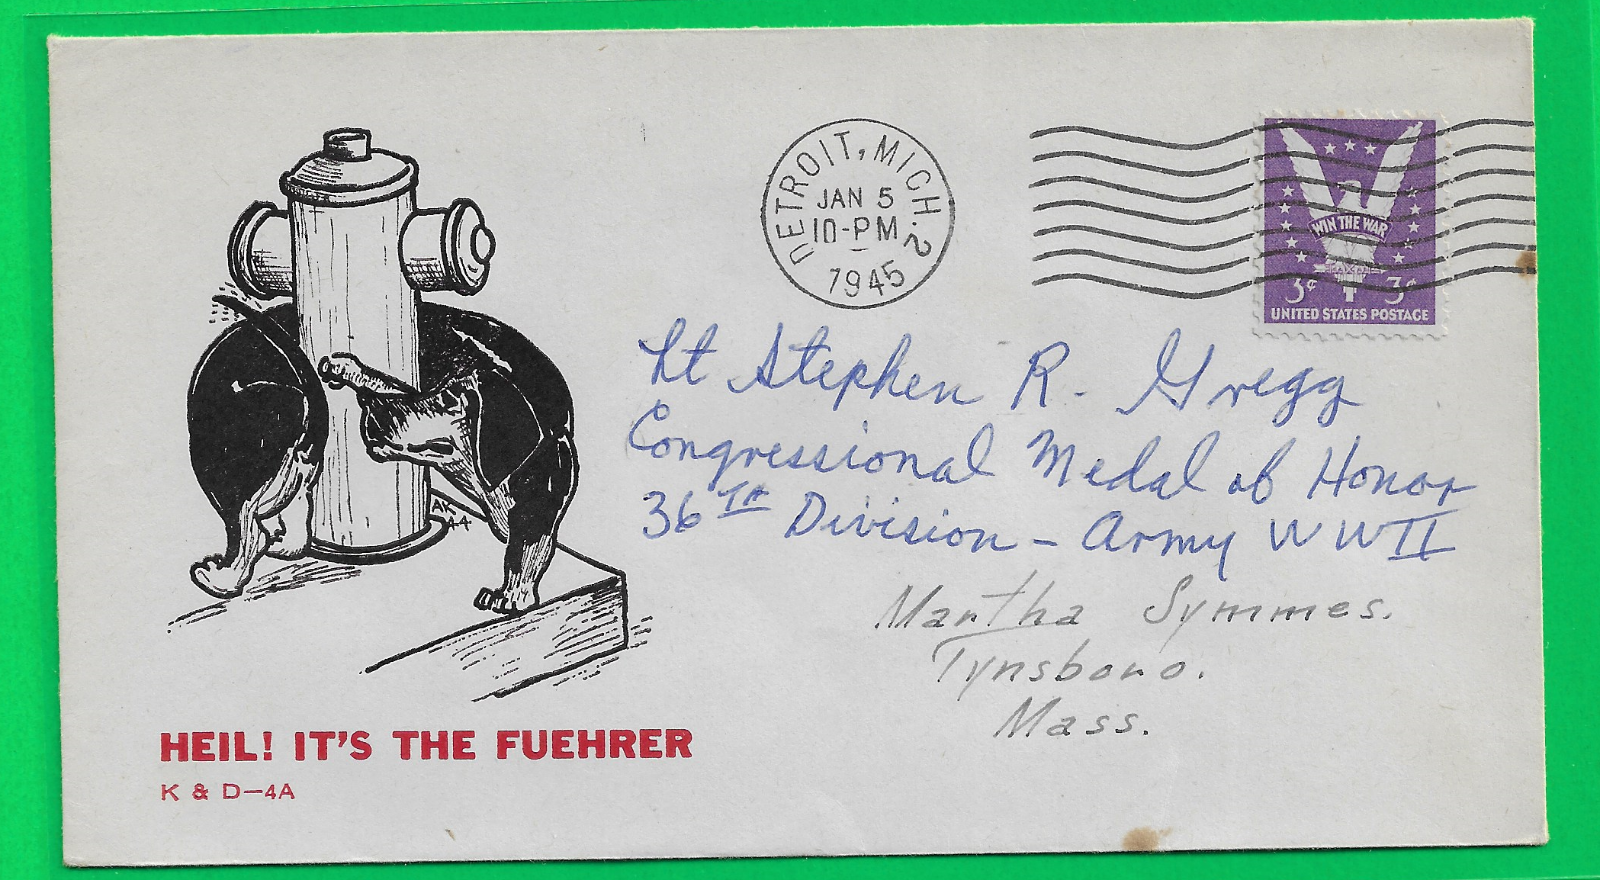 DETROIT, MICH. 2
JAN 5
10-PM
1945
WIN THE WAR
3¢ 3¢
UNITED STATES POSTAGE
Lt Stephen R. Gregg
Congressional Medal of Honor
36TH Division - Army WWII
Martha Symmes.
Tynsboro.
Mass.
AK
44
HEIL! IT'S THE FUEHRER
K & D-4A